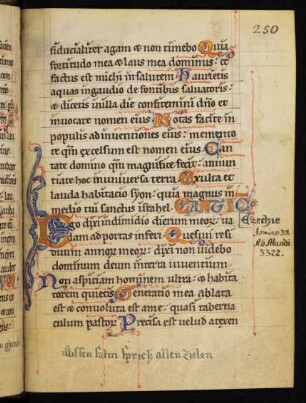 250
fiducialiter agam & non timebo Quia
fortitudo mea & laus mea dominus : &
factus est michi in salutem Haurietis
aquas in gaudio de fontibus saluatoris :
& dicetis in illa die confitemini dn̄o et
inuocate nomen eius Notas facite in
populis ad inuentiones eius : memento
te qm̄ excelsum est nomen eius Can
tate domino qm̄ magnifice fecit : annun
tiate hoc in uniuersa terra Exulta et
lauda habitatio syon : quia magnus in
medio tui sanctus israhel CANTIC
Ego dixi in dimidio dierum meoꝝ : ua
dam ad portas inferi Quesiui resi
duum annoꝝ meoꝝ : dixi non uidebo
dominum deum in terra uiuentium
Non aspiciam hominem ultra : & habita
torem quietis Generatio mea ablata
est & conuoluta est a me : quasi taberna
culum pastoꝝ Precisa est uelud a texen
Ezechie
38
Mundi
3322.